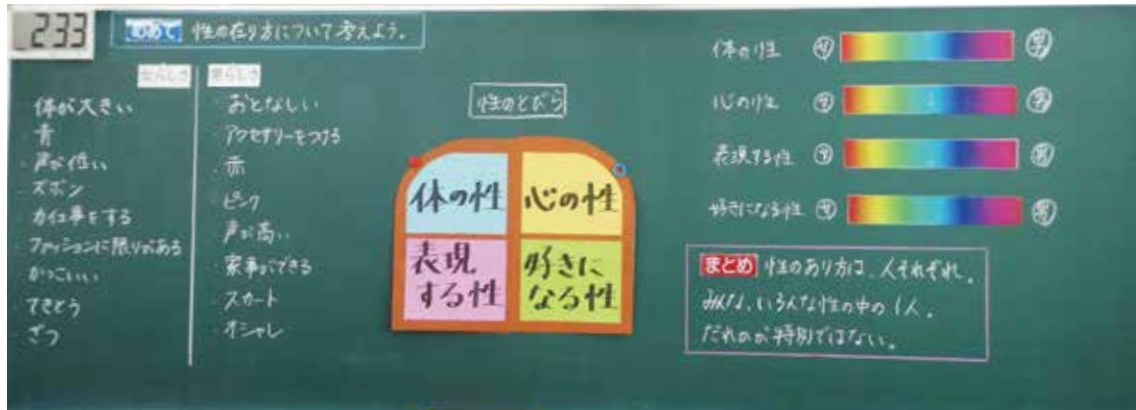 233
めあて 性の在り方について考えよう。
女らしさ
体が大きい
青
声が低い
ズボン
力仕事をする
ファッションに限りがある
かっこいい
てきとう
ざつ
男らしさ
おとなしい
アクセサリーをつける
赤
ピンク
声が高い
家事ができる
スカート
オシャレ
性のとびら
体の性 心の性
表現 好きに
する性 なる性
体の性 女 男
心の性 女 男
表現する性 女 男
好きになる性 女 男
まとめ 性のあり方は、人それぞれ。
みんな、いろんな性の中の1人。
だれのが特別ではない。